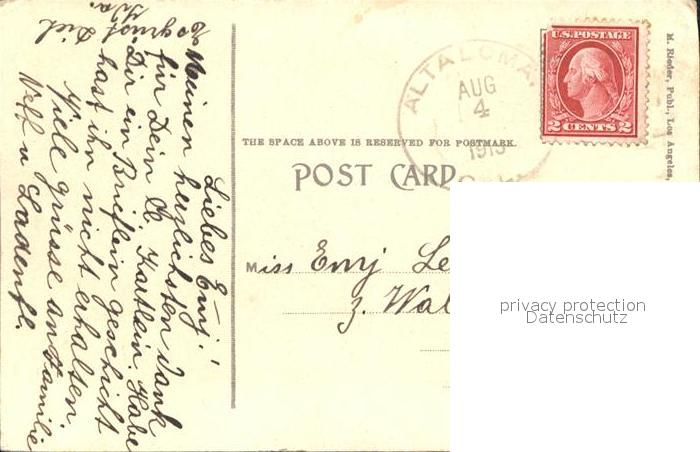 Liebes Emy!
Meinen herzlichsten Dank
für Dein lb. Kärtlein. Habe
Dir ein Brieflein geschickt
hast ihn nicht erhalten.
Viele grüsse an Familie
Neff u Ladenfl.
Es grüsst Dich
U.S. POSTAGE
2 CENTS 2
ALTALOMA,
AUG
4
1913
M. Rieder, Publ., Los Angeles,
THE SPACE ABOVE IS RESERVED FOR POSTMARK.
POST CARD
Miss Emy
z. Wal
privacy protection
Datenschutz